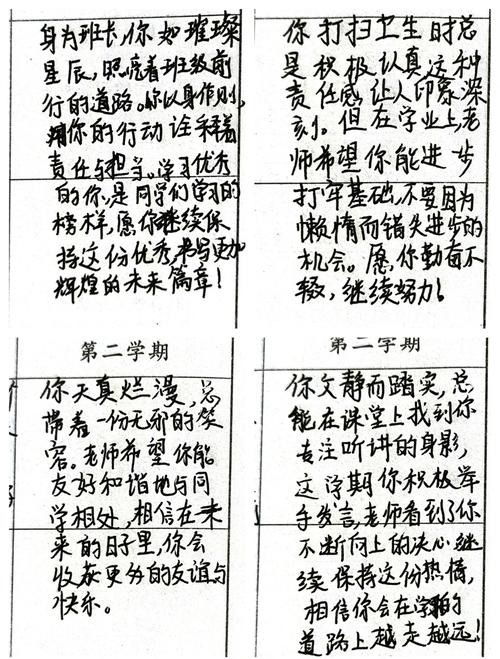 身为班长,你如璀璨
星辰,照亮着班级前
行的道路。你以身作则,
用你的行动诠释着
责任与担当。学习优秀
的你,是同学们学习的
榜样,愿你继续保
持这份优秀,书写更加
辉煌的未来篇章!
你打扫卫生时总
是积极认真这种
责任感,让人印象深
刻。但在学业上,老
师希望你能进步
打牢基础,不要因为
懒惰而错失进步的
机会。愿,你勤奋不
辍,继续努力!
第二学期
你天真烂漫,总
带着一份无邪的笑
容。老师希望你能
友好和谐地与同
学相处,相信在未
来的日子里,你会
收获更多的友谊与
快乐。
你文静而踏实,总
能在课堂上找到你
专注听讲的身影,
这学期你积极举
手发言,老师看到了你
不断向上的决心继
续保持这份热情,
相信你会在学习的
道路上越走越远!